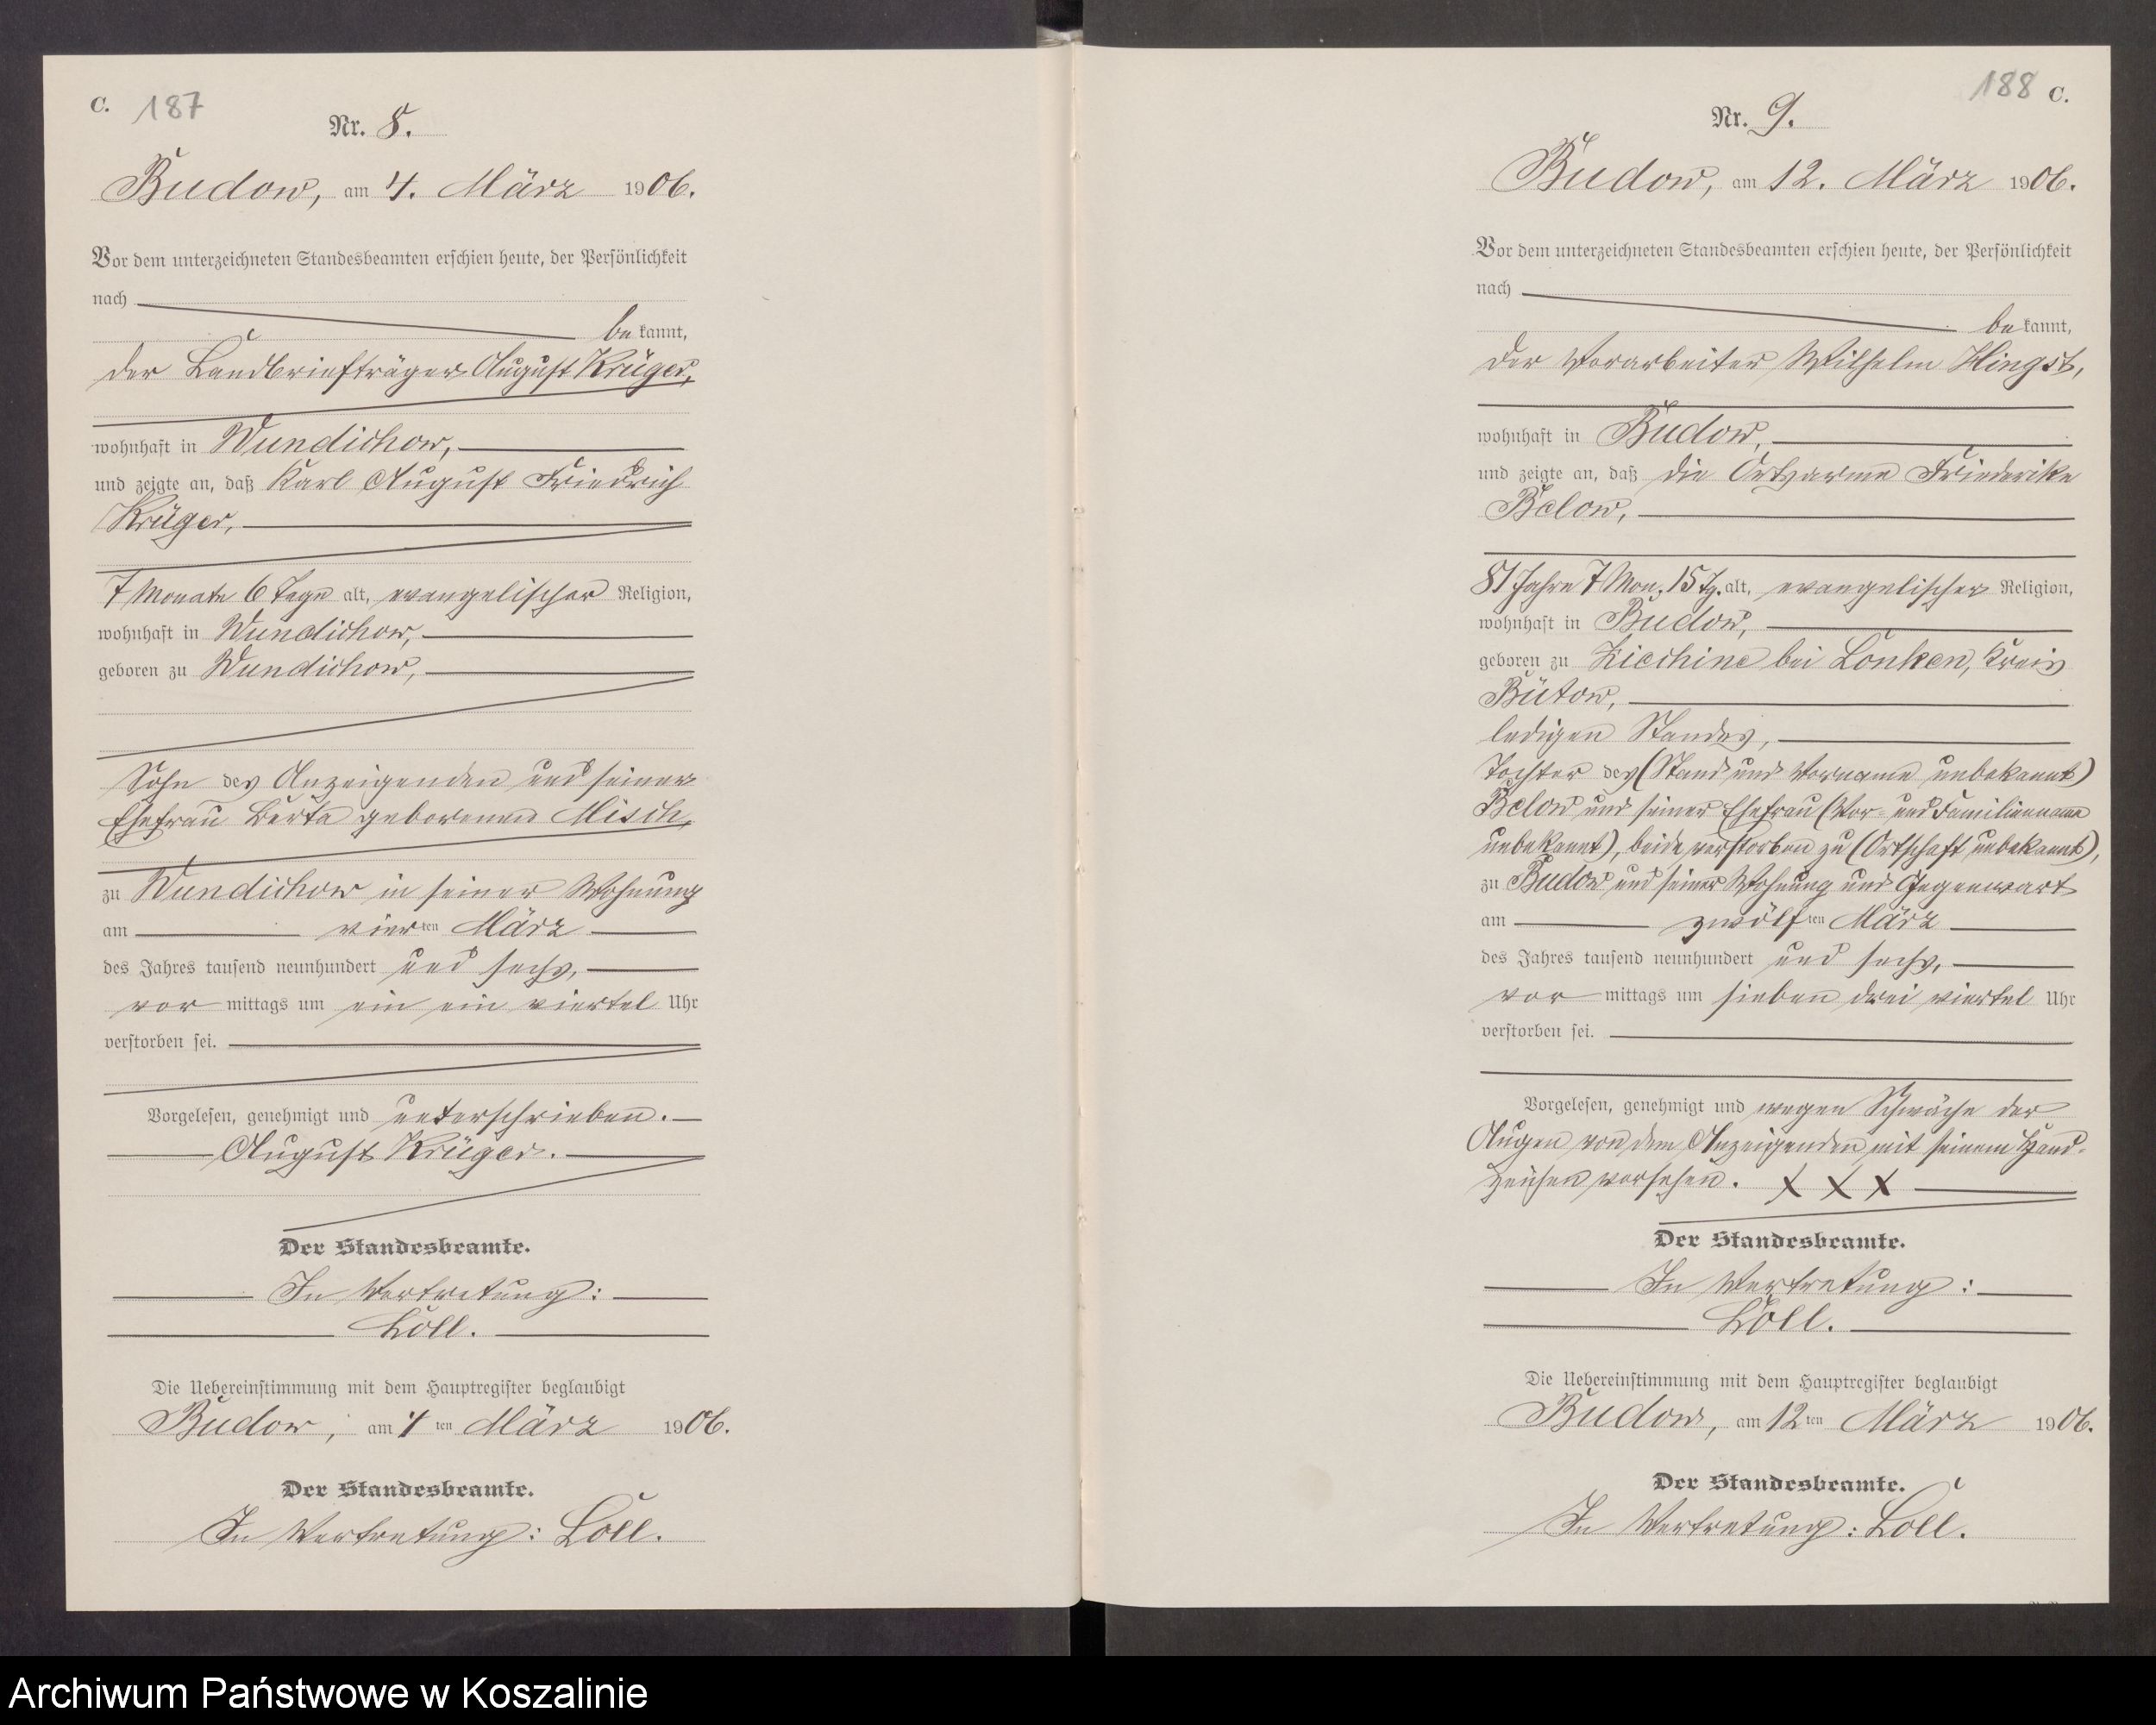 C. 187
Nr. 8.
Budow, am 4. März 1906.
Vor dem unterzeichneten Standesbeamten erschien heute, der Persönlichkeit
nach
bekannt,
der Landbriefträger August Krüger,
wohnhaft in Wundichow,
und zeigte an, daß Karl August Friedrich
Krüger,
7 Monate 6 Tage alt, evangelischer Religion,
wohnhaft in Wundichow,
geboren zu Wundichow,
Sohn des Anzeigenden und seiner
Ehefrau Berta geborenen Misch,
zu Wundichow in seiner Wohnung
am vierten März
des Jahres tausend neunhundert und sechs,
vor mittags um ein ein viertel Uhr
verstorben sei.
Vorgelesen, genehmigt und unterschrieben.
August Krüger.
Der Standesbeamte.
In Vertretung:
Löll.
Die Uebereinstimmung mit dem Hauptregister beglaubigt
Budow, am 4ten März 1906.
Der Standesbeamte.
In Vertretung: Löll.
188 C.
Nr. 9.
Budow, am 12. März 1906.
Vor dem unterzeichneten Standesbeamten erschien heute, der Persönlichkeit
nach
bekannt,
der Vorarbeiter Wilhelm Hingst,
wohnhaft in Budow,
und zeigte an, daß die Ortsarme Friederike
Below,
81 Jahre 7 Mon. 15 Tg. alt, evangelischer Religion,
wohnhaft in Budow,
geboren zu bei Lonken, Kreis
Bütow,
ledigen Standes,
Tochter des (Stand und Vorname unbekannt)
Below und seiner Ehefrau (Vor- und Familienname
unbekannt), beide verstorben zu (Ortschaft unbekannt),
zu Budow und seiner Wohnung und Gegenwart
am zwölften März
des Jahres tausend neunhundert und sechs,
vor mittags um sieben drei viertel Uhr
verstorben sei.
Vorgelesen, genehmigt und wegen Schwäche der
Augen von dem Anzeigenden mit seinem Hand-
zeichen versehen. X X X
Der Standesbeamte.
In Vertretung:
Löll.
Die Uebereinstimmung mit dem Hauptregister beglaubigt
Budow, am 12ten März 1906.
Der Standesbeamte.
In Vertretung: Löll.
Archiwum Państwowe w Koszalinie